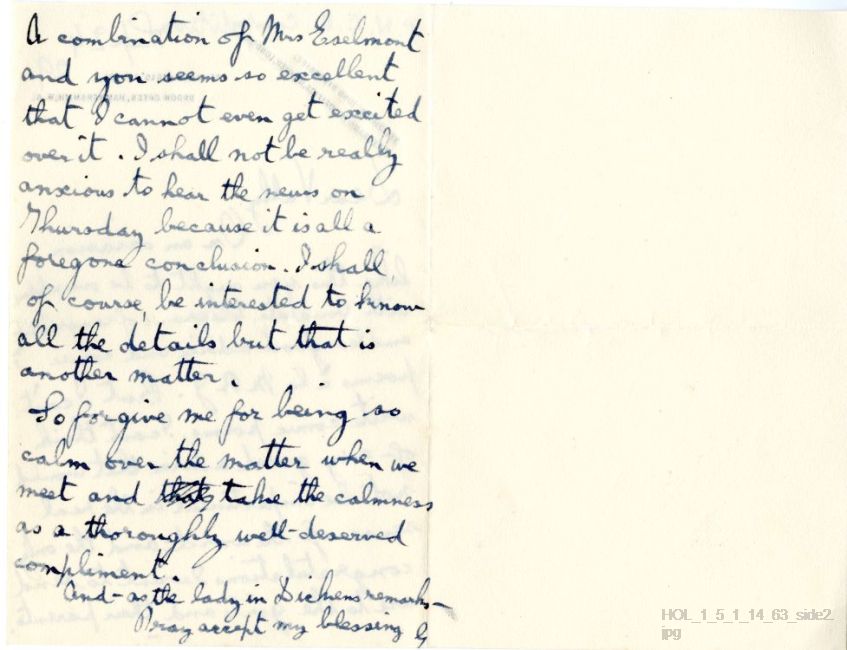 A combination of Mrs Eselmont
and you seems so excellent
that I cannot even get excited
over it. I shall not be really
anxious to hear the news on
Thursday because it is all a
foregone conclusion. I shall,
of course, be interested to know
all the details but that is
another matter.
So forgive me for being so
calm over the matter when we
meet and take the calmness
as a thoroughly well-deserved
compliment.
And - as the lady in Dickens remarks -
Pray accept my blessing
HOL_1_5_1_14_63_side2.
jpg